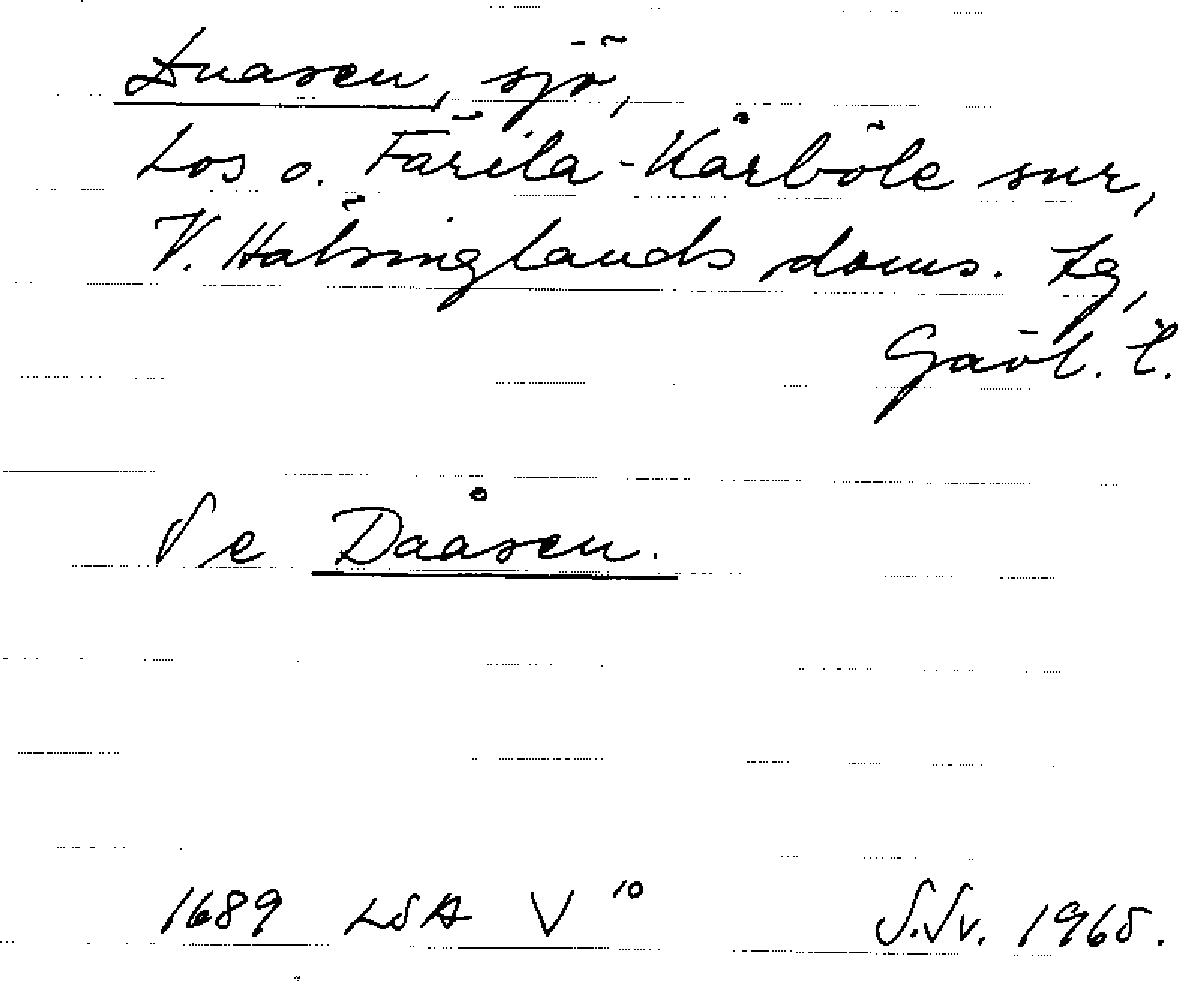 Duasen, sjö,
Los o. Färila-Kårböle snr,
V. Hälsinglands doms. Lg,
Gävl. l.
Se Daåsen.
1689 LSA V 10
S.Sv. 1965.